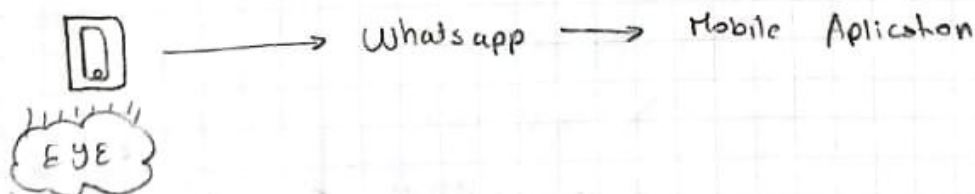 Whatsapp Mobile Aplication
EYE